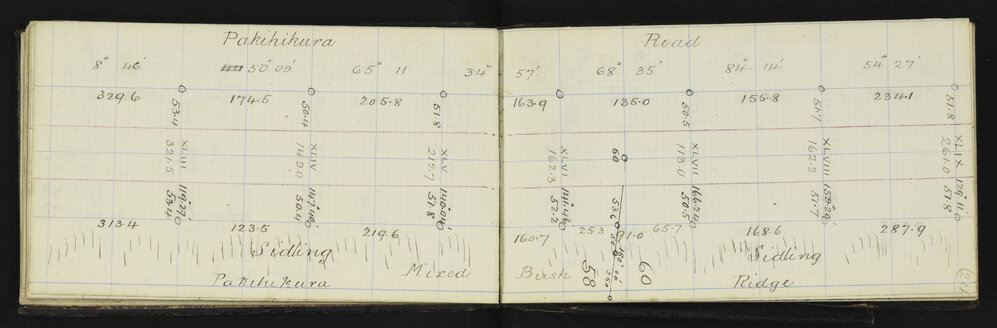 Pakihikura Road
8° 46' 50° 09' 65° 11 34° 57' 68° 35' 84° 14' 54° 27'
329.6 174.5 205.8 163.9 135.0 155.8 234.1
53.4 50.4 51.8 50.5 51.7 51.8
XLIII XLIV XLV XLVI XLVII XLVIII XLIX
321.5 149.0 212.7 162.3 113.0 162.2 261.0
60
119°27' 147°49' 140°04' 141°46' 166°24' 159°29' 129°11'
53.4 50.4 51.8 52.2 50.5 51.7 51.8
313.4 123.5 219.6 160.7 253 91.0 65.7 168.6 287.9
Sidling Sidling
Mixed Bush 58 60
Pakihikura Ridge